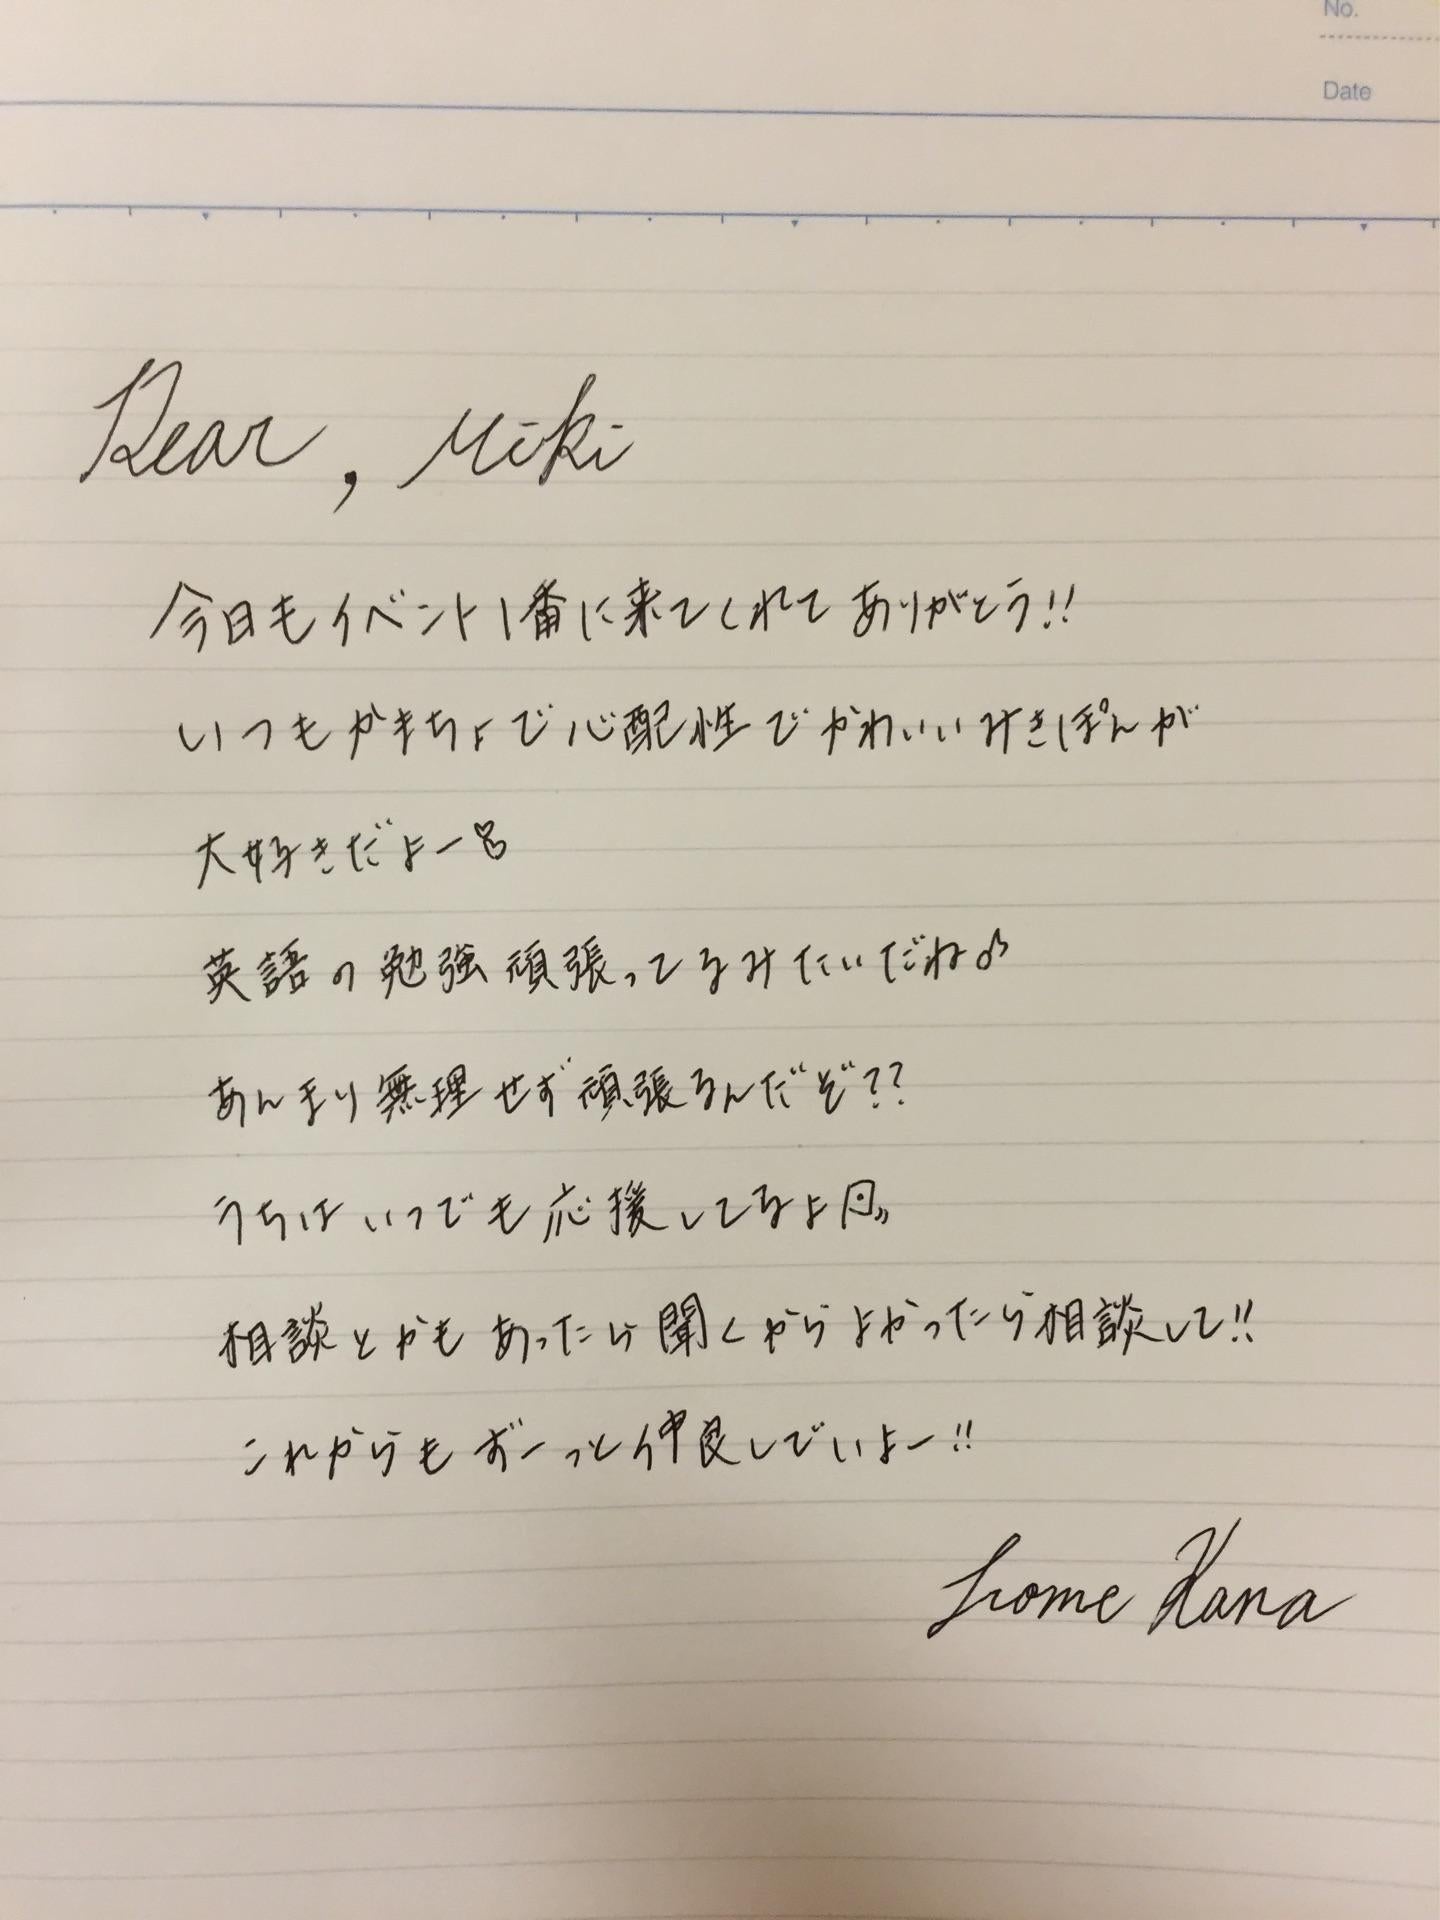 No.
Date
Dear, Miki
今日もイベント1番に来てくれてありがとう!!
いつもかまちょで心配性でかわいいみきぽんが
大好きだよー♡
英語の勉強頑張ってるみたいだね♪
あんまり無理せず頑張るんだぞ??
うちはいつでも応援してるよ
相談とかもあったら聞くからよかったら相談して!!
これからもずーっと仲良しでいよー!!
Frome Kana